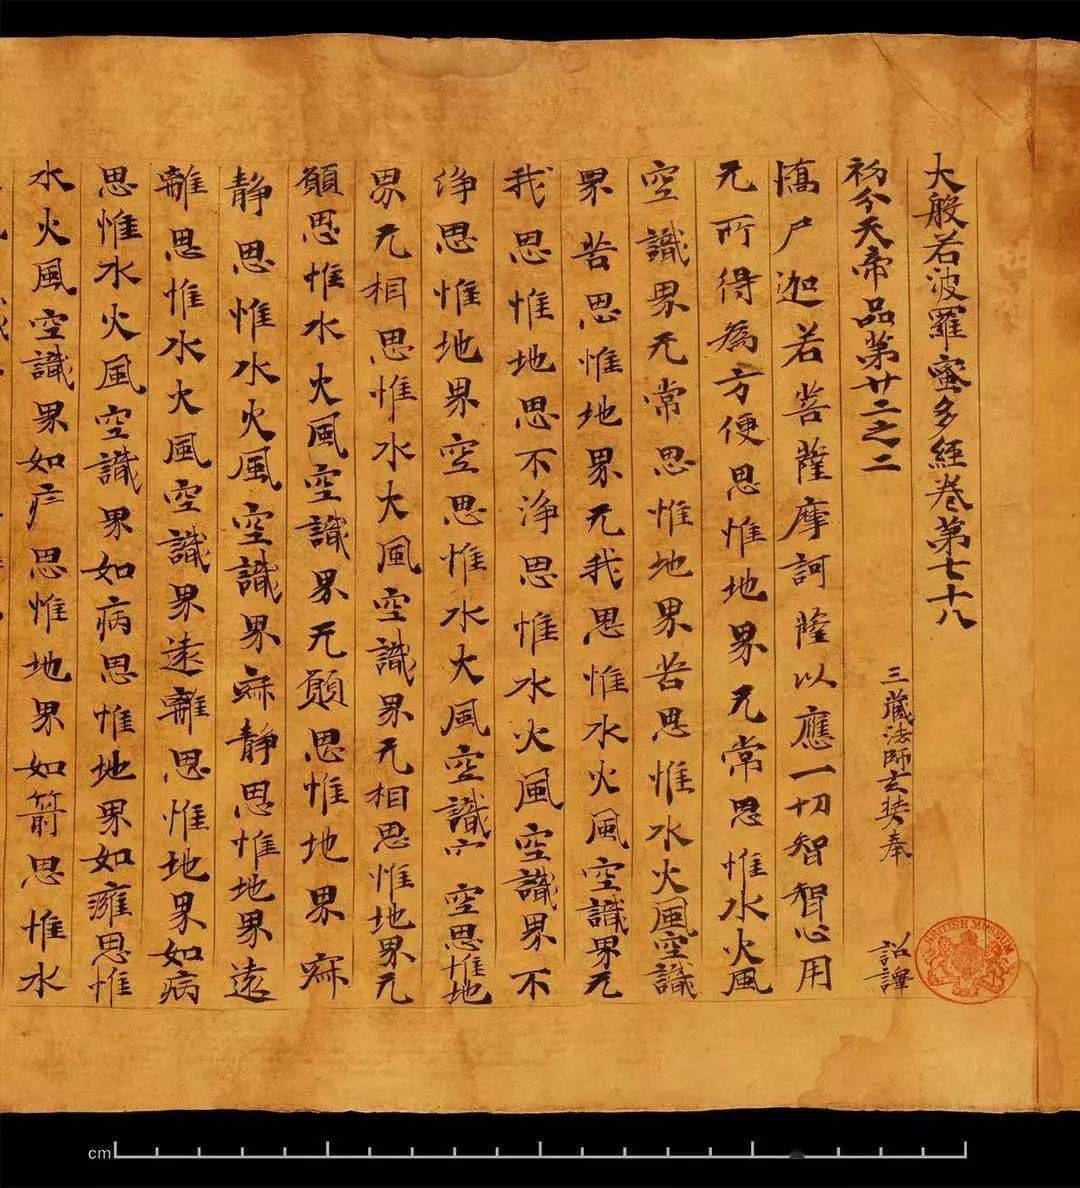 大般若波羅蜜多經卷第七十八
初分天帝品第廿二之二 三藏法師玄奘奉 詔譯
憍尸迦若菩薩摩訶薩以應一切智智心用
无所得為方便思惟地界无常思惟水火風
空識界无常思惟地界苦思惟水火風空識
界苦思惟地界无我思惟水火風空識界无
我思惟地思不淨思惟水火風空識界不
淨思惟地界空思惟水火風空識宀空思惟地
界无相思惟水火風空識界无相思惟地界无
願思惟水火風空識界无願思惟地界寂
静思惟水火風空識界寂静思惟地界遠
離思惟水火風空識界遠離思惟地界如病
思惟水火風空識界如病思惟地界如癰思惟
水火風空識界如疒思惟地界如箭思惟水
BRITISH MUSEUM
cm